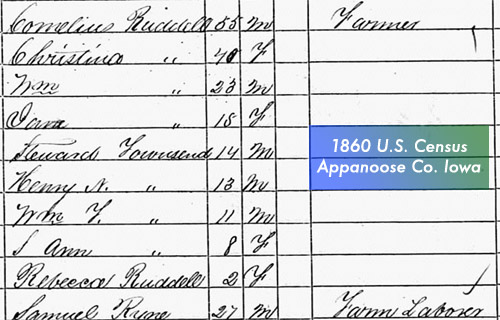 Cornelius Ruddell 55 M Farmer
Christina " 40 F
Wm " 23 M
Jane " 18 F
Steward Townsend 14 M
Henry N. " 13 M
Wm F. " 11 M
S Ann " 8 F
Rebecca Ruddell 2 F
Samuel Ryne 27 M Farm Laborer
1860 U.S. Census
Appanoose Co. Iowa